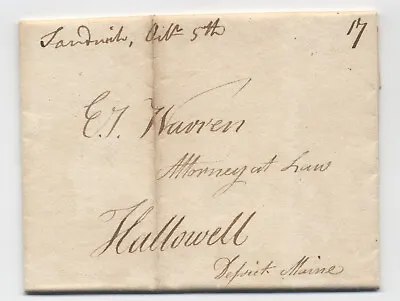 Sandwich, Octr 5th 17
E. T. Warren
Attorney at Law
Hallowell
District Maine